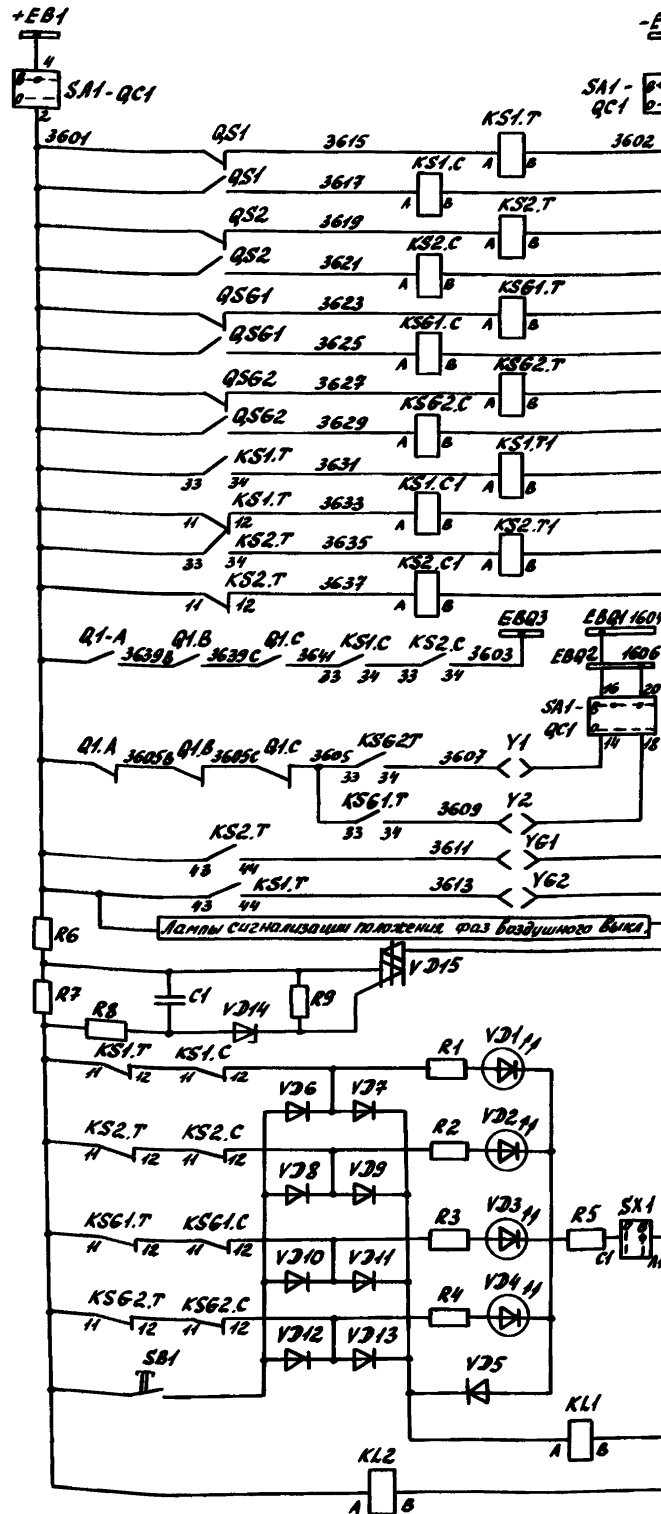 +EB1
-E
4
В
О
SA1-QC1
2
SA1-
QC1
3601 QS1 3615 KS1.T 3602
A B
QS1 3617 KS1.C
A B
QS2 3619 KS2.T
A B
QS2 3621 KS2.C
A B
QSG1 3623 KSG1.T
A B
QSG1 3625 KSG1.C
A B
QSG2 3627 KSG2.T
A B
QSG2 3629 KSG2.C
A B
KS1.T 3631 KS1.T1
33 34 A B
KS1.T 3633 KS1.C1
11 12 A B
KS2.T 3635 KS2.T1
33 34 A B
KS2.T 3637 KS2.C1
11 12 A B
EBQ3 EBQ1 1604
Q1-A 3639B Q1.B 3639C Q1.C 3641 KS1.C KS2.C 3603
33 34 33 34
EBQ2 1606
16 20
SA1-
QC1
В
О
14 18
Q1.A 3605B Q1.B 3605C Q1.C 3605 KSG2T 3607 Y1
33 34
KSG1.T 3609 Y2
33 34
KS2.T 3611 YG1
43 44
KS1.T 3613 YG2
43 44
Лампы сигнализации положения фаз воздушного выкл.
R6
VD15
R7
C1
R9
R8
VD14
KS1.T KS1.C R1 VD1
11 12 11 12
VD6 VD7
KS2.T KS2.C R2 VD2
11 12 11 12
VD8 VD9
KSG1.T KSG1.C R3 VD3 R5 SX1
11 12 11 12 C1
VD10 VD11
KSG2.T KSG2.C R4 VD4
11 12 11 12
VD12 VD13
SB1
VD5
KL1
A B
KL2
A B